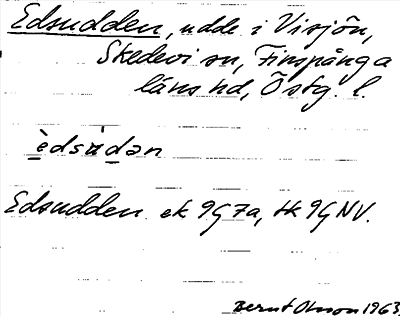 Edsudden, udde i Visjön,
Skedevi sn, Finspånga
läns hd, Östg. l.
èdsu̍dən
Edsudden ek 9G7a, tk 9G NV.
Bernt Olsson 1963.